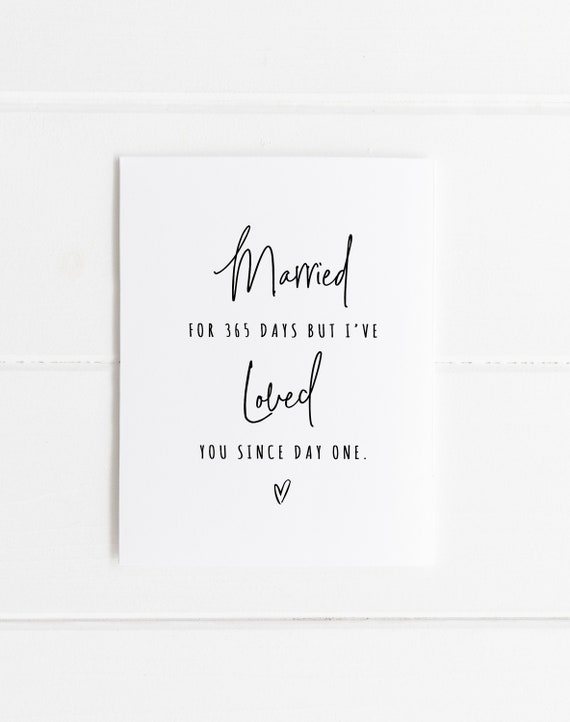 Married
FOR 365 DAYS BUT I'VE
Loved
YOU SINCE DAY ONE.